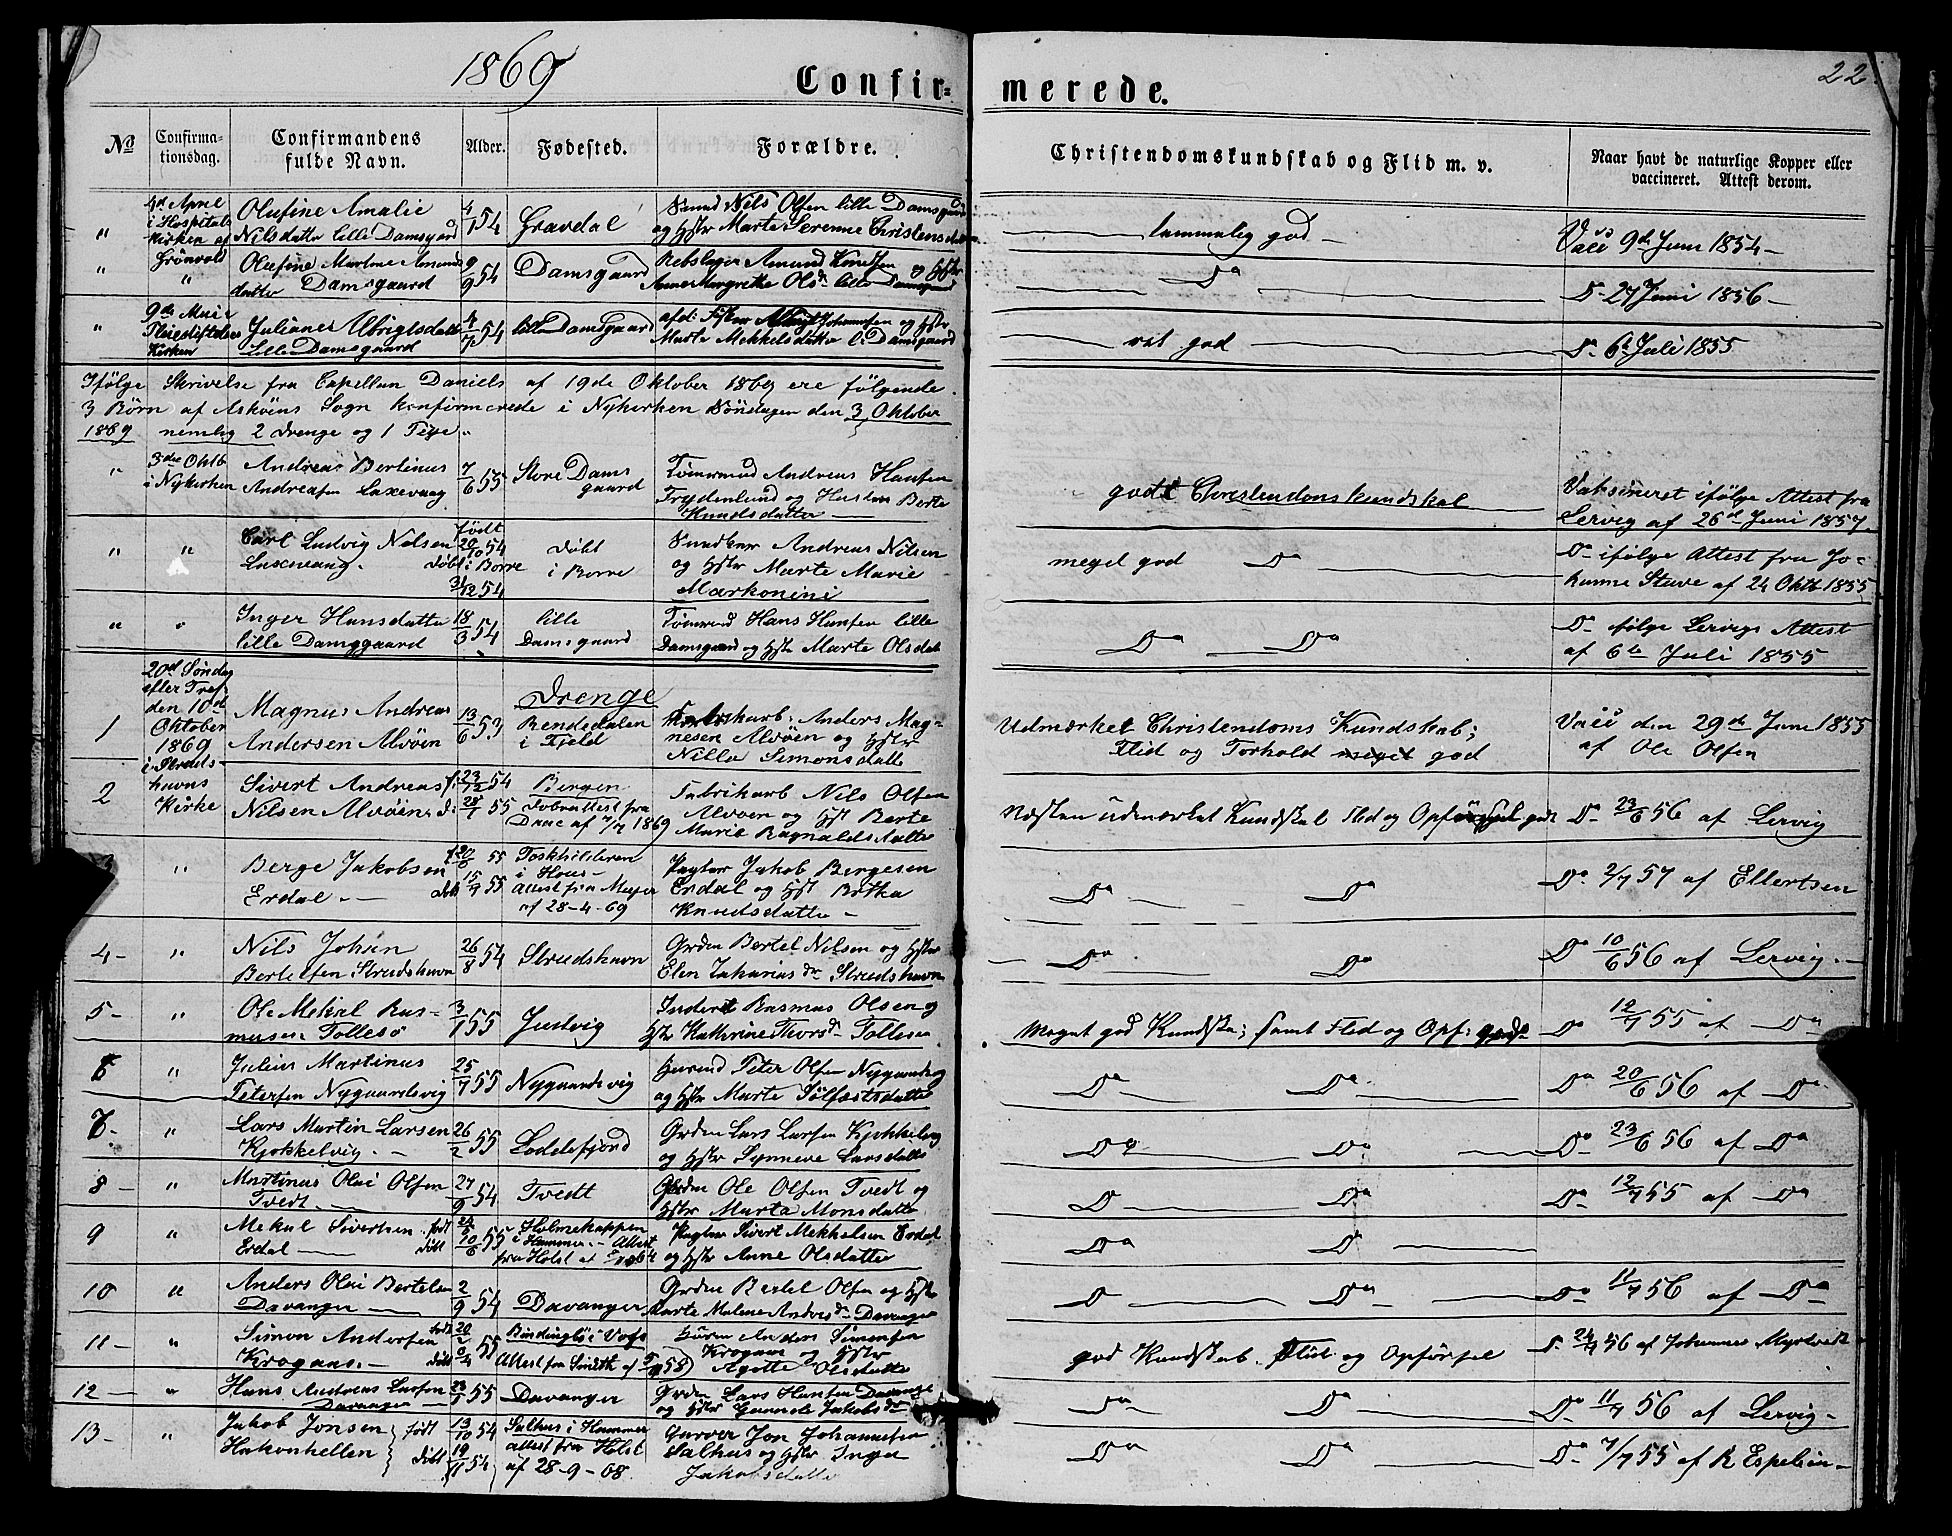 1869
22
Confirmerede.
No
Confirmationsdag.
Confirmandens fulde Navn.
Alder.
Fødested.
Forældre.
Christendomskundskab og Flid m. v.
Naar havt de naturlige Kopper eller
vaccineret. Attest derom.
" 4d April i Hospitals Kirken af Grönvold
Olufine Amalie
Nilsdatter lille Damsgård
4/1 54
Gravdal
Smed Nils Olsen lille Damsgaard
og Hstr Marte Serenne Christensdatter
temmelig god
Vacc 9de Juni 1854
" "
Olufine Martine Amunds
datter Damsgaard
9/9 54
Damsgaard
Rebslager Amund Knudsen og Hstr
Anne Margrethe Olsdr lille Damsgaard
Do
D. 27 Juni 1856
" 9de Mai i Kirken
Juliane Ulrigtsdatter
Lille Damsgaard
4/7 54
lille Damsgaard
afd. Fisker Johannesen og Hstr
Marte Mekkelsdatter l. Damsgaard
ret god
D. 6te Juli 1855
Ifølge Skrivelse fra Capellan Daniels af 19de Oktober 1869 ere følgende
3 Børn af Askøens Sogn konfirmerede i Nykirken Søndagen den 3 Oktober
1869 nemlig 2 drenge og 1 Pige
" 3die Oktb i Nykirken
Andreas Bertinus
Andreasen Laxevaag
7/6 55
Store Damsgaard
Tømrmd Andreas Hansen
Frydenlund og Hustru Berte
Knudsdatter
godt Christendomskundskab
Vaksineret ifølge Attest fra
Lervig af 26de Juni 1857
" "
Carl Ludvig Nilsen
Laxevaag.
født 20/10 54
døbt i Borre 31/12 54
døbt
i Borre
Andreas Nilsen
og Hstr Marte Marie
Markonini
meget god Do
Do ifølge Attest fra Jo-
hanne Stuve af 24 Oktb 1855
" "
Inger Hansdatter
lille Damsgaard
18/3 54
lille
Damsgaard
Tømrmd Hans Hansen lille
Damsgaard og Hstr Marte Olsdatter
Do Do
Do ifølge Lervigs Attest
af 6te Juli 1855
20d Søndag
efter Tref.
den 10de
Oktober
1869
i Strudshavns
Kirke
Drenge
1
Magnus Andreas
Andersen Alvøen
13/6 53
Rendedalen
i Fjeld
Fabrikarb: Anders Mag-
nesen Alvøen og Hstr
Nille Simonsdatter
Udmærket Christendoms Kundskab;
Flid og Forhold meget god
Vacc den 29de Juni 1855
af Ole Olsen
2
Sivert Andreas
Nilsen Alvøen
f: 23/12 54
d: 28/1 55
Bergen
Døbeattest fra
Daae af 7/7 1869
Fabrikarb Nils Olsen
Alvøen og Hst Berte
Marie Ragnaldsdatter
Næsten udmærket Kundskab Flid og Opførsel god
Do 23/6 56 af Lervig
3 "
Berge Jakobsen
Erdal
f 20/6 55
døbt 15/7 55
i Hous
Attest fra Meyer
af 28-4-69
Pagter Jakob Bergesen
Erdal og Hst Britha
Knudsdatter
Do Do
Do 2/7 57 af Ellertsen
4 "
Nils Johan
Bertelsen Strudshavn
26/8 54
Strudshavn
Grdm Bertel Nilsen og Hstr
Elen Zakariasdr Strudshavn
Do Do
Do 10/6 56 af Lervig
5 "
Ole Mekal Ras-
musen Follesø
3/1 55
Judvig
Inderst Rasmus Olsen og
Hstr Katherine Thorsdr Follesø
Meget god Kundska; samt Flid og Opf: god
Do 12/7 55 af Do
6 "
Julius Martinus
Petersen Nygaardsvig
25/7 55
Nygaardsvig
Husmd Peter Olsen Nygaardsvig
og Hstr Marte Sølfæstsdatter
Do Do
Do 20/6 56 af Do
7 "
Lars Martin Larsen
Kjøkkelvig
26/2 55
Loddefjord
Grdm Lars Larsen Kjøkkelvig
og Hstr Synneve Larsdatter
Do Do
Do 23/6 56 af Do
8 "
Martinus Olai Olsen
Tvedt
27/9 54
Tvedt
Grdm Ole Olsen Tvedt og
Hstr Marta Monsdatter
Do Do
Do 12/7 55 af Do
9 "
Mekal Sivertsen
Erdal
født
døbt 10/6 55
Holmeknappen
i Hammer. - Attest
fra Holst
Pagter Sivert Mekhelsen Erdal
og Hstr Anne Olsdatter
Do Do
10 "
Anders Olai Bertelsen
Davanger
2/9 54
Davanger
Grdm Bertel Olsen og Hstr
Marte Malene Andersdr Davanger
Do Do
Do 11/7 56 af Do
11 "
Simon Andersen
Krogaas
født
døbt 55
i Voss
Attest fra Smith af
Anders Simonsen
Krogaas og Hstr
Agotte Olsdatter
god Kundskab, Flid og Opførsel
D. 24/7 56 af Johannes Myrtvedt
12 "
Hans Andreas Larsen
Davanger
55
Davanger
Grdm Lars Hansen Davanger
og Hstr Gunnele Jakobsdr
Do Do
Do 11/7 56 af Lervig
13 "
Jakob Jonsen
Hakonhellen
født 13/10 54
døbt 19/11 54
Salhus i Hammer
attest fra Holst
af 28-9-68
Garver Jon Johannesen
Salhus og Hstr Inga
Jakobsdatter
Do Do
Do 7/7 55 af R Espelien